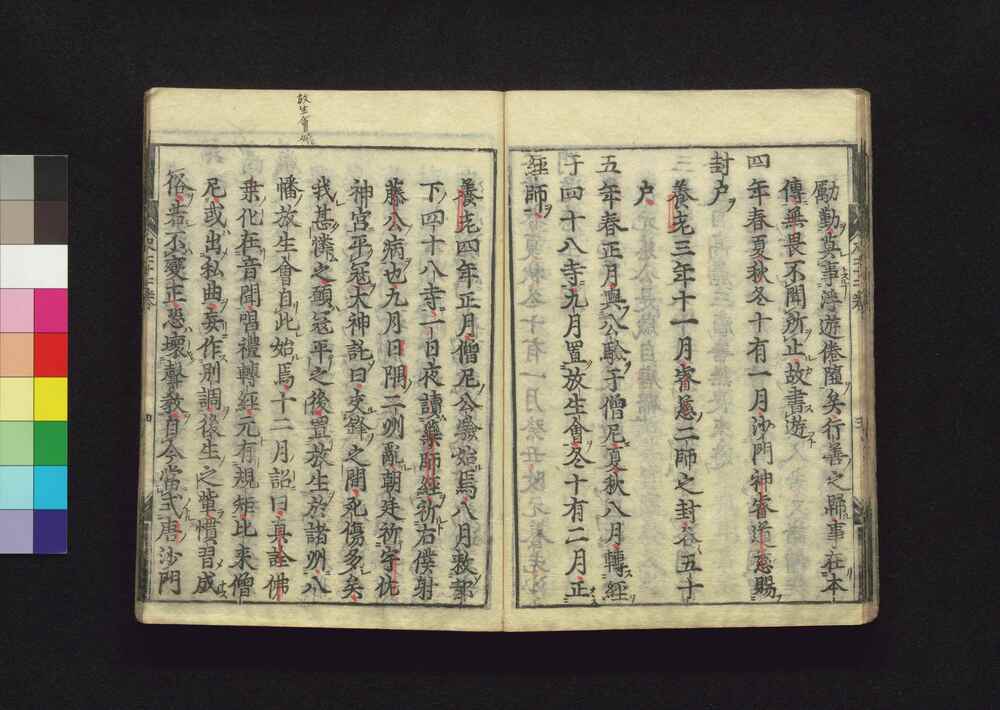 勵勤莫事浮遊倦隨矣行善之歸事在本
傳無畏不聞所止故書遊
四年春夏秋冬十有一月沙門神睿道慈賜
封戸
三養老三年十一月睿慈二師之封各五十
戸
五年春正月與公驗于僧尼夏秋八月轉經
于四十八寺九月置放生會冬十有二月正
經師
放生會
養老四年正月僧尼公驗始焉八月敕都
下四十八寺一日夜讀藥師經祈右僕射
藤公病也九月日隅二州亂朝廷祈宇佐
神宮平冦大神託曰交鋒之間死傷多矣
我甚憐之顧冦平之後置放生於諸州八
幡放生會自此始焉十二月詔曰眞詮佛
乗化在音聞唱禮轉經元有規矩比来僧
尼或出私曲妄作別調後生之軰慣習成
俗若不變正恐壞聲教自今當式唐沙門